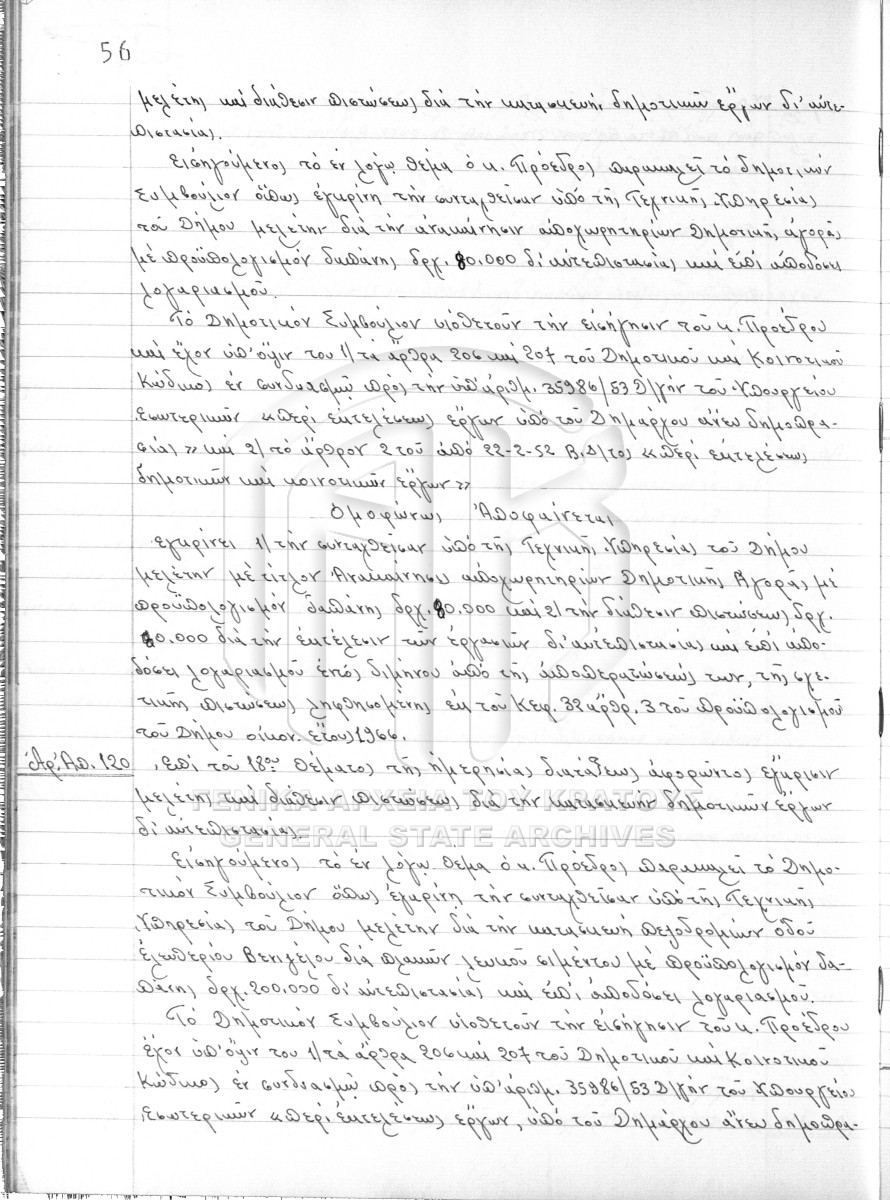 56
μελέτης καί διάθεσιν πιστώσεως διά τήν κατασκευήν δημοτικῶν ἔργων δι' αὐτε-
πιστασίας.
Εἰσηγούμενος τό ἐν λόγῳ θέμα ὁ κ. Πρόεδρος παρακαλεῖ τό δημοτικόν
Συμβούλιον ὅπως ἐγκρίνη τήν συνταχθεῖσαν ὑπό τῆς Τεχνικῆς Ὑπηρεσίας
τοῦ Δήμου μελέτην διά τήν ἀνακαίνησιν ἀποχωρητηρίων Δημοτικῆς ἀγορᾶς
μέ προϋπολογισμόν δαπάνης δρχ. 80.000 δι' αὐτεπιστασίας καί ἐπί ἀποδόσει
λογαριασμοῦ.
Τό Δημοτικόν Συμβούλιον υἱοθετοῦν τήν εἰσήγησιν τοῦ κ. Προέδρου
καί ἔχον ὑπ' ὄψιν του 1/ τά ἄρθρα 206 καί 207 τοῦ Δημοτικοῦ καί Κοινοτικοῦ
Κώδικος ἐν συνδυασμῷ πρός τήν ὑπ' ἀριθμ. 35986/53 Δ/γήν τοῦ Ὑπουργείου
Ἐσωτερικῶν «περί ἐκτελέσεως ἔργων ὑπό τοῦ Δημάρχου ἄνευ δημοπρα-
σίας» καί 2/ τό ἄρθρον 2 τοῦ ἀπό 22-2-52 Β.Δ/τος «περί ἐκτελέσεως
δημοτικῶν καί κοινοτικῶν ἔργων»
Ὁμοφώνως Ἀποφαίνεται
ἐγκρίνει 1/ τήν συνταχθεῖσαν ὑπό τῆς Τεχνικῆς Ὑπηρεσίας τοῦ Δήμου
μελέτην μέ τίτλον Ἀνακαίνησις ἀποχωρητηρίων Δημοτικῆς Ἀγορᾶς μέ
προϋπολογισμόν δαπάνης δρχ. 80.000 καί 2/ τήν διάθεσιν πιστώσεως δρχ.
80.000 διά τήν ἐκτέλεσιν τῶν ἐργασιῶν δι' αὐτεπιστασίας καί ἐπί ἀπο-
δόσει λογαριασμοῦ ἐντός διμήνου ἀπό τῆς ἀποπερατώσεώς των, τῆς σχε-
τικῆς πιστώσεως ληφθησομένης ἐκ τοῦ Κεφ. 32 ἄρθρ. 3 τοῦ προϋπολογισμοῦ
τοῦ Δήμου οἰκον. ἔτους 1966.
Ἀρ. Ἀπ. 120 Ἐπί τοῦ 18ου θέματος τῆς ἡμερησίας διατάξεως ἀφορῶντος ἔγκρισιν
μελέτης καί διάθεσιν πιστώσεως διά τήν κατασκευήν δημοτικῶν ἔργων
δι' αὐτεπιστασίας.
ΓΕΝΙΚΑ ΑΡΧΕΙΑ ΤΟΥ ΚΡΑΤΟΥΣ
GENERAL STATE ARCHIVES
Εἰσηγούμενος τό ἐν λόγῳ θέμα ὁ κ. Πρόεδρος παρακαλεῖ τό Δημο-
τικόν Συμβούλιον ὅπως ἐγκρίνη τήν συνταχθεῖσαν ὑπό τῆς Τεχνικῆς
Ὑπηρεσίας τοῦ Δήμου μελέτην διά τήν κατασκευή πεζοδρομίων ὁδοῦ
Ἐλευθερίου Βενιζέλου διά πλακῶν λευκοῦ σιμέντου μέ προϋπολογισμόν δα-
πάνης δρχ. 200.000 δι' αὐτεπιστασίας καί ἐπί ἀποδόσει λογαριασμοῦ.
Τό Δημοτικόν Συμβούλιον υἱοθετοῦν τήν εἰσήγησιν τοῦ κ. Προέδρου
ἔχον ὑπ' ὄψιν του 1/ τά ἄρθρα 206 καί 207 τοῦ Δημοτικοῦ καί Κοινοτικοῦ
Κώδικος ἐν συνδυασμῷ πρός τήν ὑπ' ἀριθμ. 35986/53 Δ/γήν τοῦ Ὑπουργείου
Ἐσωτερικῶν «περί ἐκτελέσεως ἔργων, ὑπό τοῦ Δημάρχου ἄνευ δημοπρα-